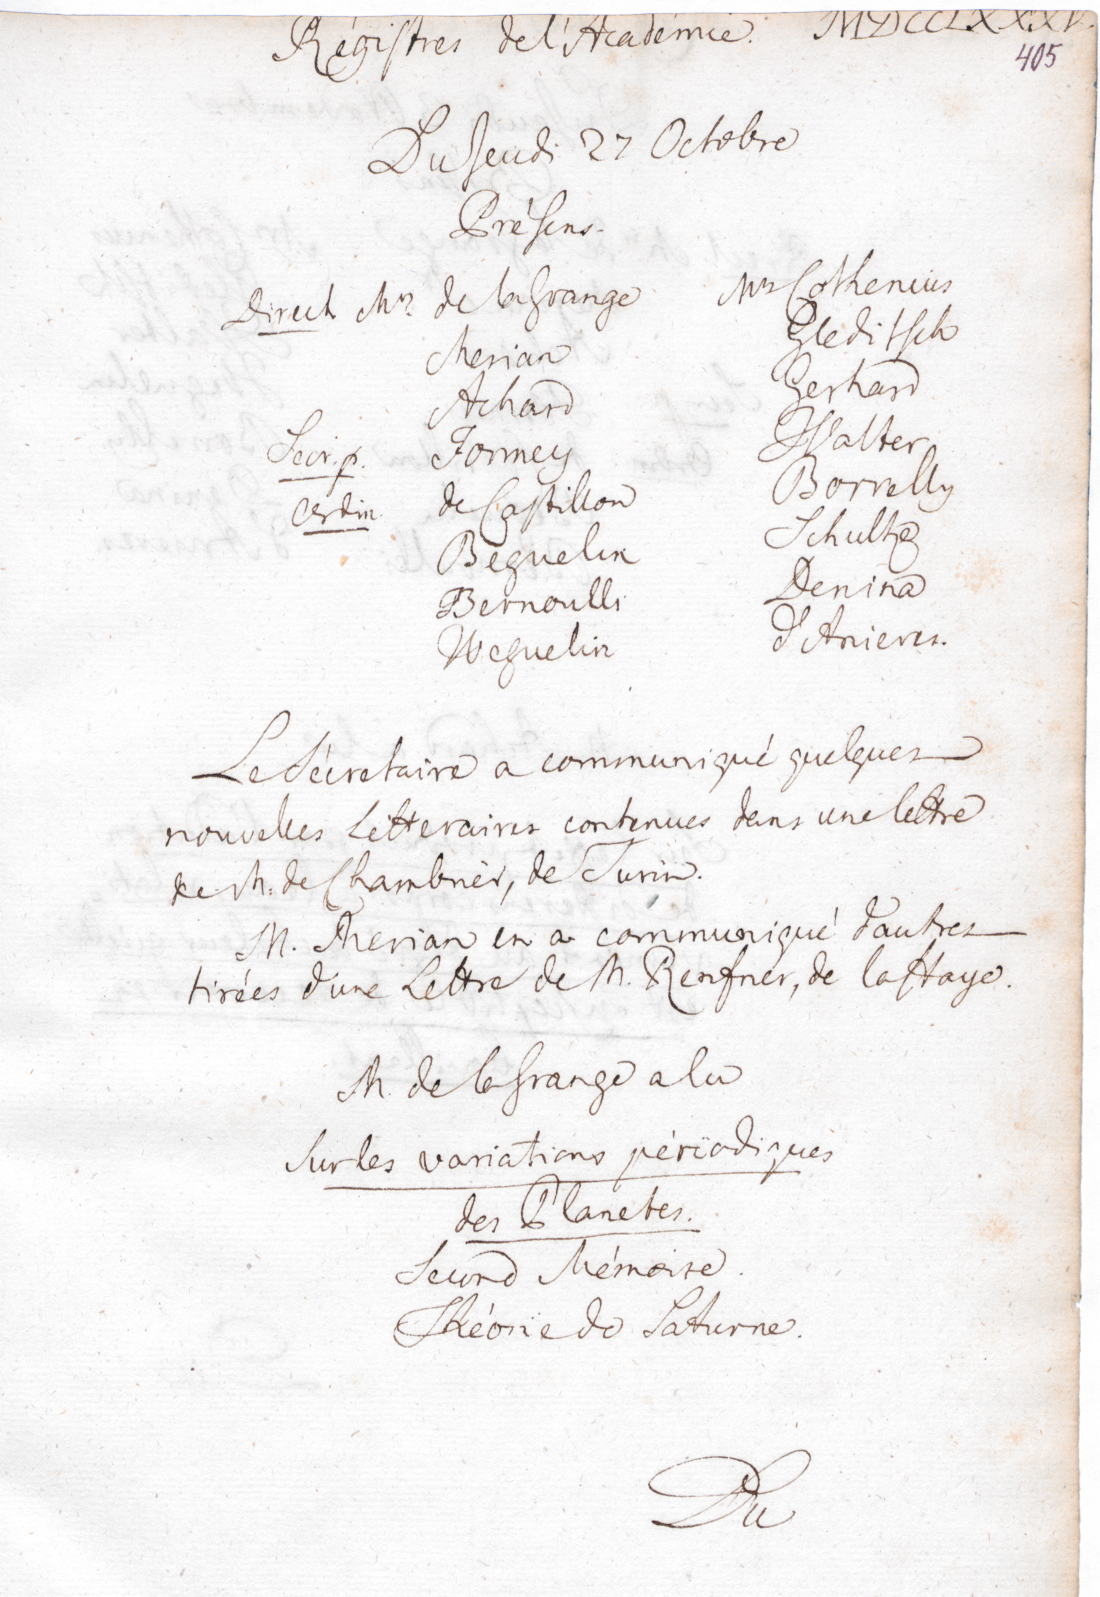 Régistres de l'Académie. MDCCLXXXV.
405
Du Jeudi 27 Octobre
Présens.
Direct. Mrs de la Grange
Merian
Achard
Secr. p. Formey
Ordin. de Castillon
Beguelin
Bernoulli
Weguelin
Mrs Cothenius
Gleditsch
Gerhard
Walter
Borrelly
Schultz
Denina
d'Anieres.
Le Sécretaire a communiqué quelques
nouvelles Litteraires contenues dans une lettre
de M. de Chambrier, de Turin.
M. Merian en a communiqué d'autres
tirées d'une Lettre de M. Renfner, de la Haye.
M. de la Grange a lu
Sur les variations périodiques
des Planetes.
Second Mémoire.
Théorie de Saturne.
Du